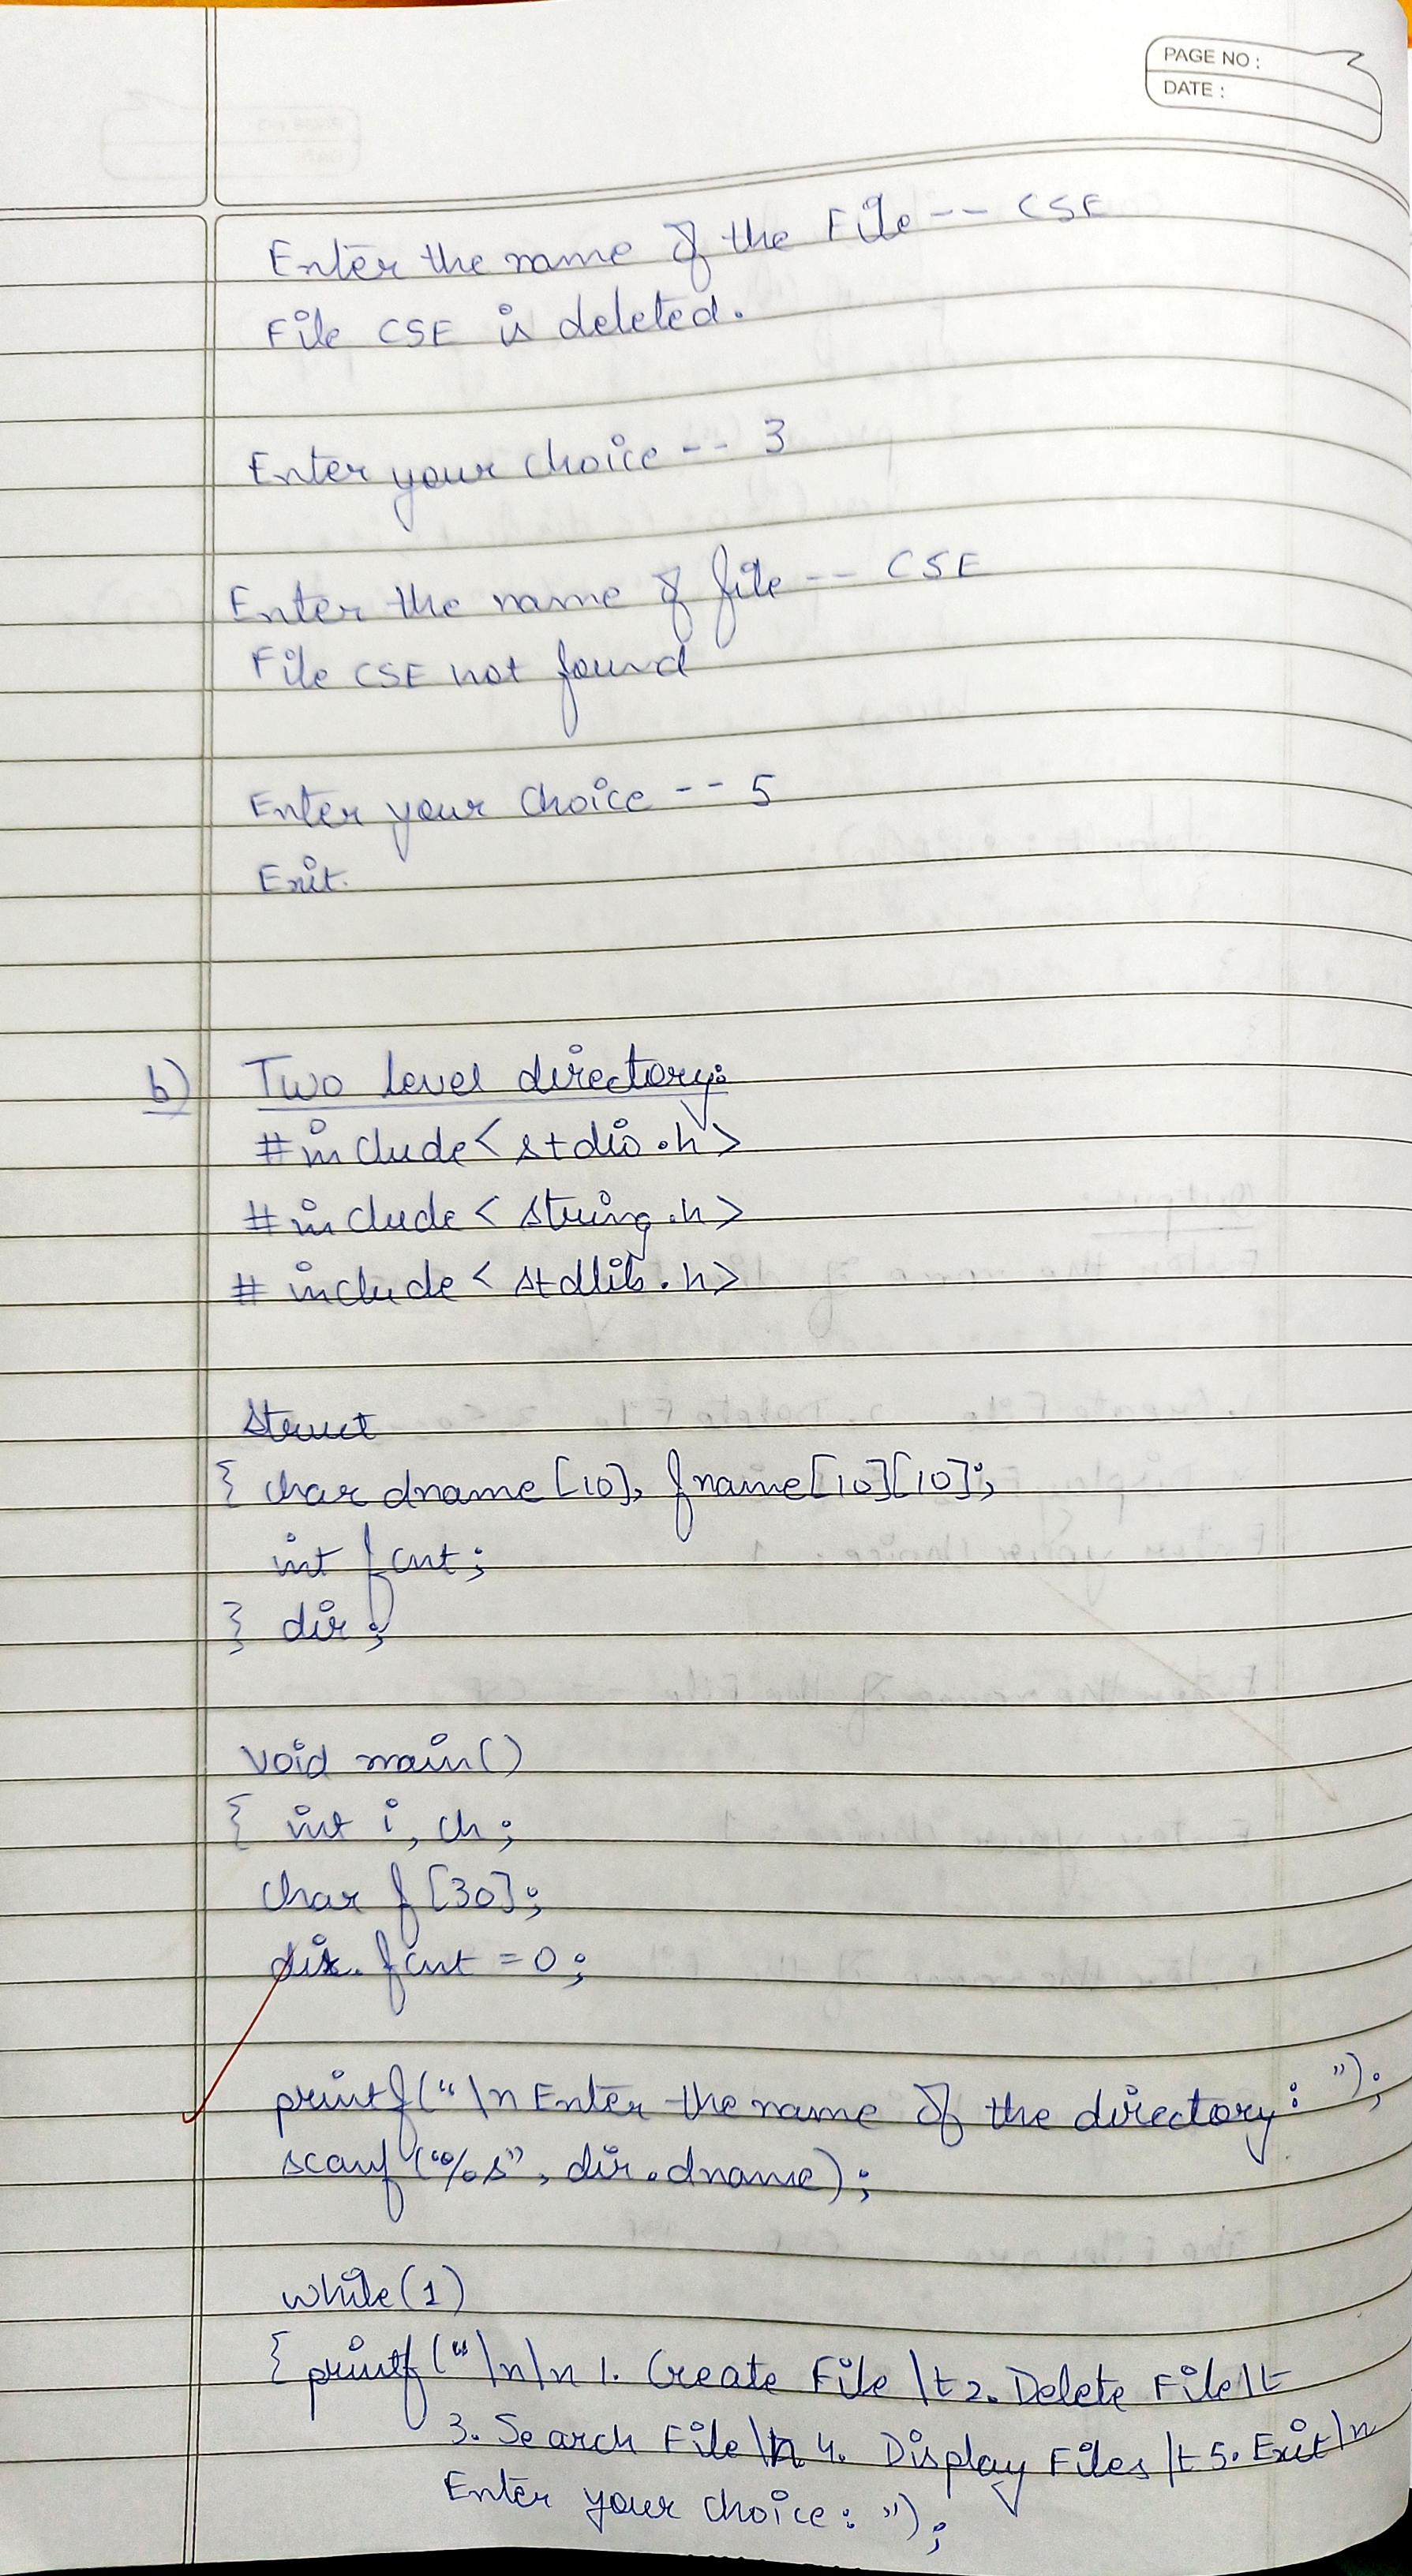 PAGE NO :
DATE :
Enter the name of the File -- CSE
File CSE is deleted.
Enter your choice -- 3
Enter the name of file -- CSE
File CSE not found
Enter your choice -- 5
Exit.
b) Two level directory:
#include<stdio.h>
#include<string.h>
# include<stdlib.h>
struct
{ char dname[10], fname[10][10];
int fcnt;
} dir;
void main()
{ int i, ch;
char f[30];
dir. fcnt = 0;
printf("\n Enter the name of the directory: ");
scanf("%s", dir.dname);
while(1)
{ printf("\n\n 1. Create File \t 2. Delete File \t
3. Search File \n 4. Display Files \t 5. Exit \n
Enter your choice: ");